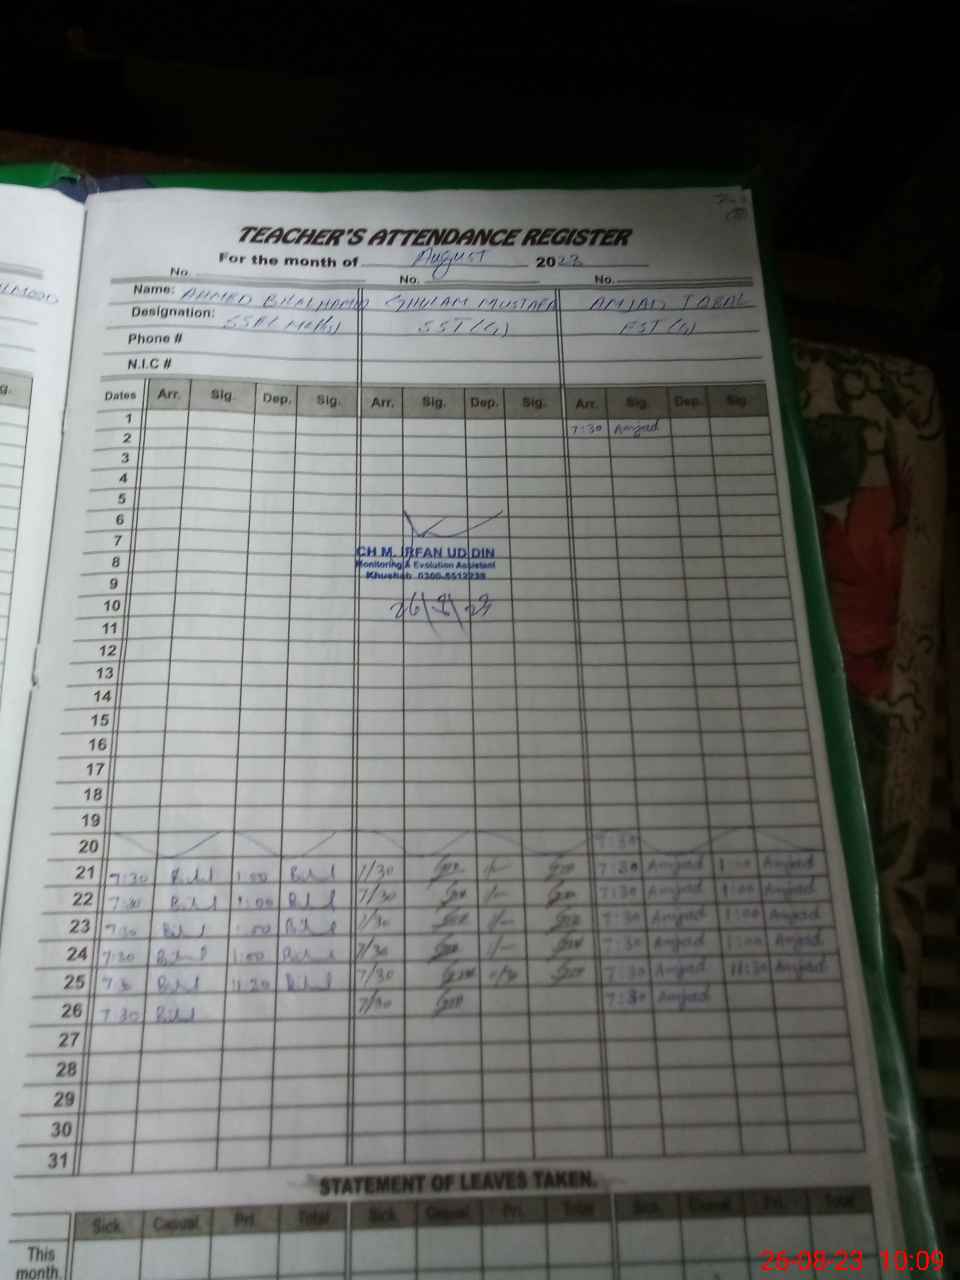 TEACHER'S ATTENDANCE REGISTER
For the month of August 2023
No. No. No.
Name: AHMED BILAL HAMID GHULAM MUSTAFA AMJAD IQBAL
Designation: SST(G) EST(G)
Phone #
N.I.C #
Dates Arr. Sig. Dep. Sig. Arr. Sig. Dep. Sig. Arr. Sig. Dep. Sig.
1
2 7:30 Amjad
3
4
5
6
7
CH M. IRFAN UD DIN
8 Monitoring & Evolution Assistant
Khushab
9
10 26/8/23
11
12
13
14
15
16
17
18
19
20 7:30
21 7:30 Bilal 1:00 Bilal 7/30 7:30 Amjad 1:00 Amjad
22 7:30 Bilal 1:00 Bilal 7/30 7:30 Amjad 1:00 Amjad
23 7:30 Bilal 1:00 Bilal 7/30 7:30 Amjad 1:00 Amjad
24 7:30 Bilal 1:00 Bilal 7/30 7:30 Amjad 1:00 Amjad
25 Bilal 11:30 Bilal 7/30 7:30 Amjad 11:30 Amjad
26 7:30 Bilal 7/30 7:30 Amjad
27
28
29
30
31
STATEMENT OF LEAVES TAKEN.
Sick. Casual. Pri. Total Sick. Casual. Pri. Total Sick. Casual. Pri. Total
This
month.
26-08-23 10:09